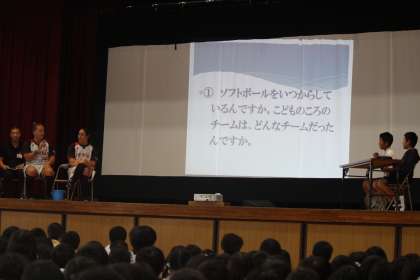 ① ソフトボールをいつからして
いるんですか。こどものころの
チームは、どんなチームだった
んですか。